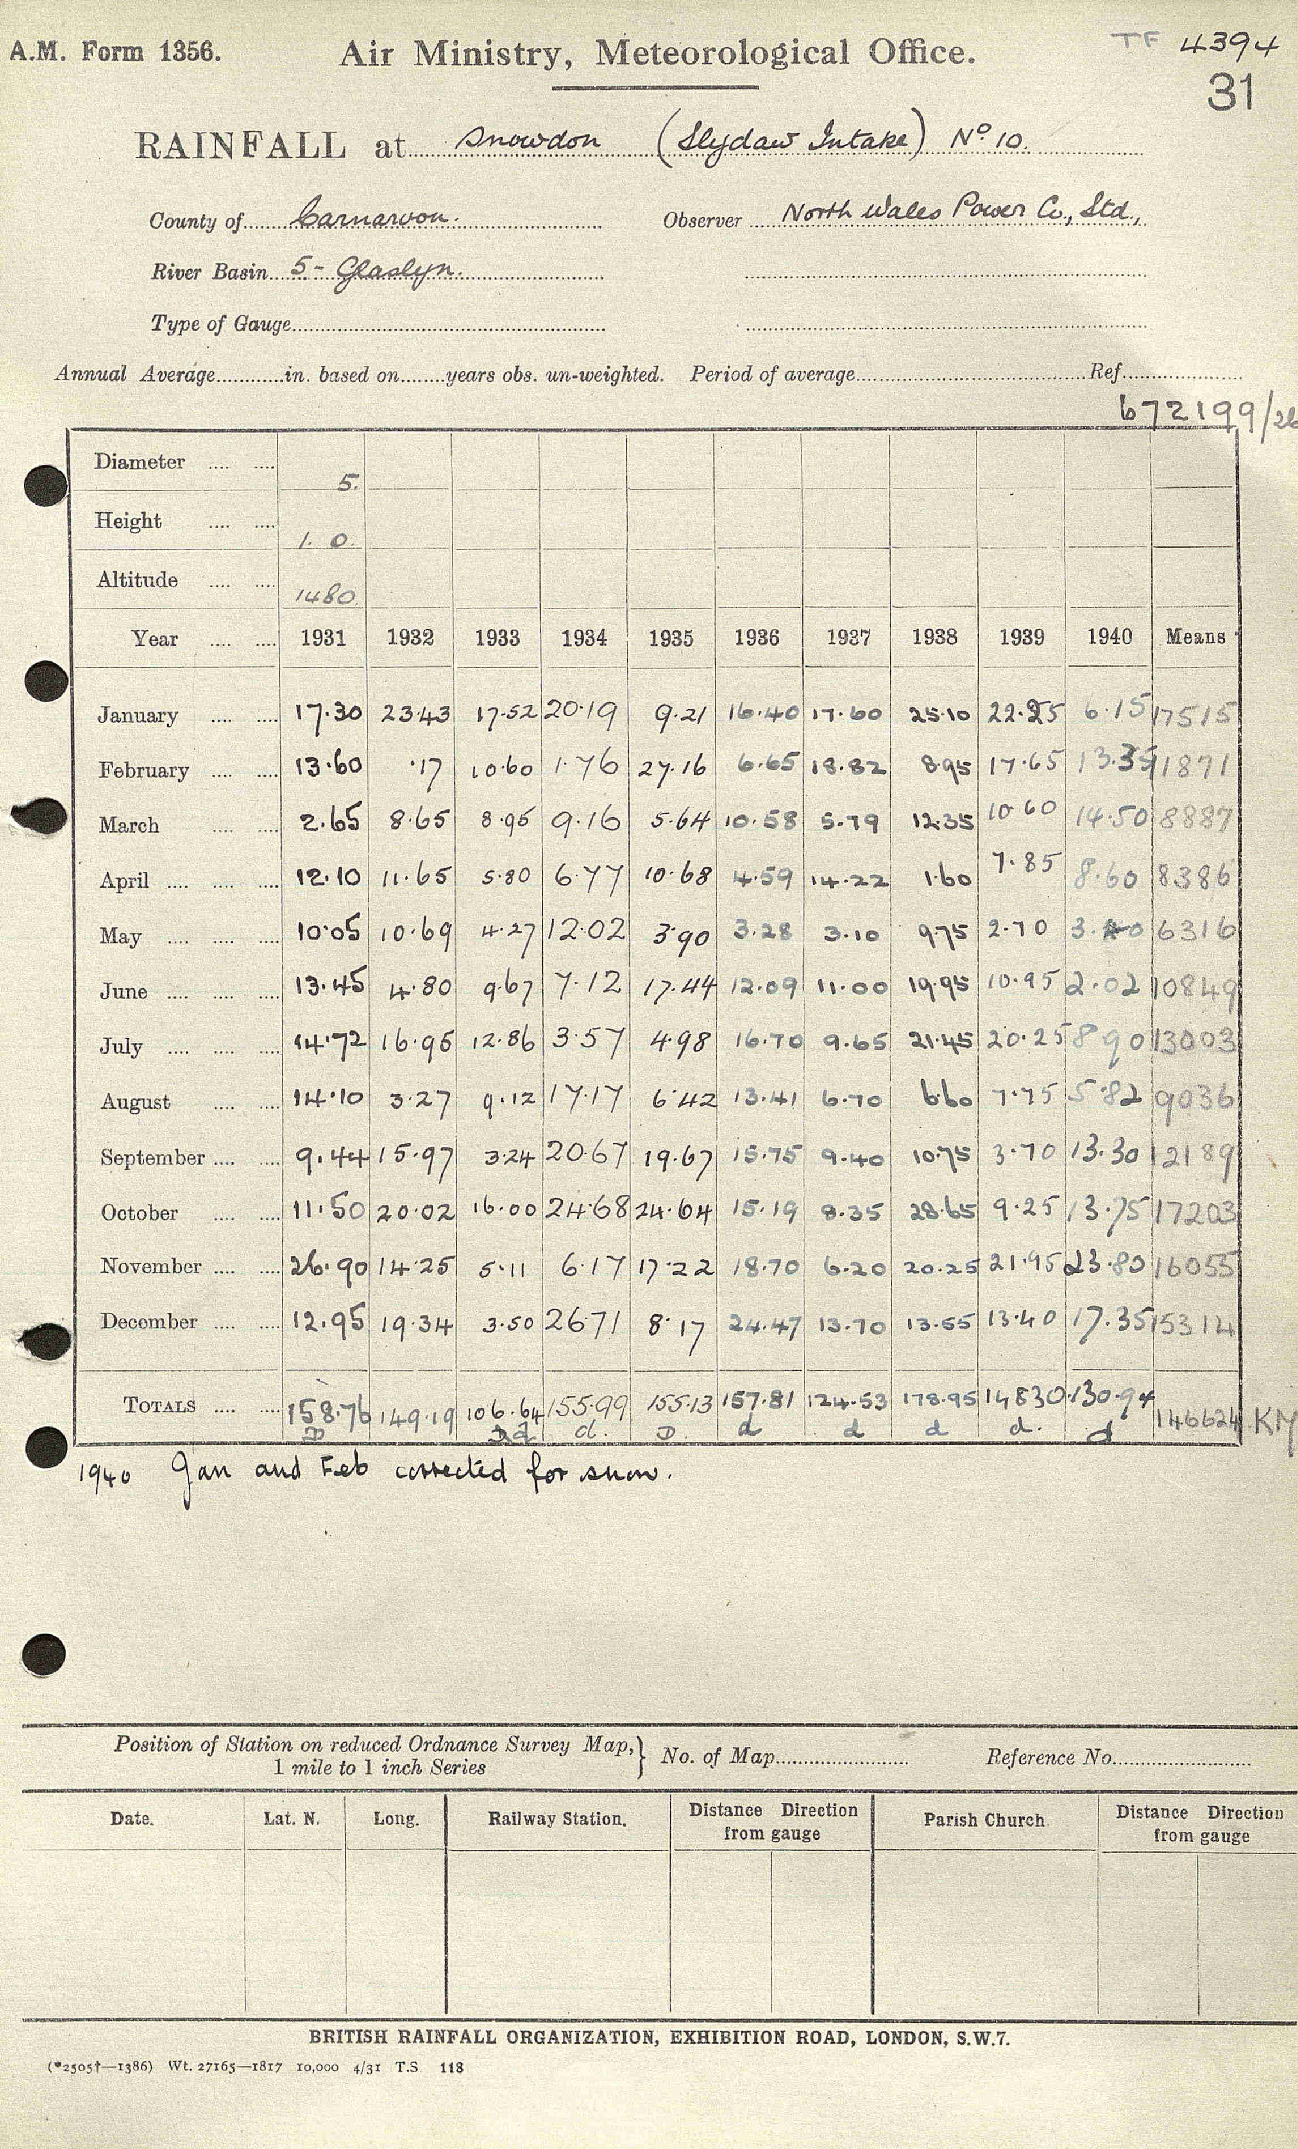 A.M. Form 1356.
Air Ministry, Meteorological Office.
TF 4394
31
RAINFALL at Snowdon (Llydaw Intake) No 10.
County of Carnarvon.
Observer North Wales Power Co., Ltd.,
River Basin 5 - Glaslyn.
Type of Gauge
Annual Average in. based on years obs. un-weighted. Period of average Ref.
672199/26
Diameter 5.
Height 1. 0.
Altitude 1480.
Year 1931 1932 1933 1934 1935 1936 1937 1938 1939 1940 Means
January 17.30 23.43 17.52 20.19 9.21 16.40 17.60 25.10 22.25 6.15 17515
February 13.60 .17 10.60 1.76 27.16 6.65 18.82 8.95 17.65 13.35 11871
March 2.65 8.65 8.95 9.16 5.64 10.58 5.79 12.35 10.60 14.50 8887
April 12.10 11.65 5.80 6.77 10.68 4.59 14.22 1.60 7.85 8.60 8386
May 10.05 10.69 4.27 12.02 3.90 3.28 3.10 9.75 2.70 3.40 6316
June 13.45 4.80 9.67 7.12 17.44 12.09 11.00 19.95 10.95 2.02 10849
July 14.72 16.95 12.86 3.57 4.98 16.70 9.65 21.45 20.25 8.90 13003
August 14.10 3.27 9.12 17.17 6.42 13.41 6.70 6.60 7.75 5.82 9036
September 9.44 15.97 3.24 20.67 19.67 15.75 9.40 10.75 3.70 13.30 12189
October 11.50 20.02 16.00 24.68 24.64 15.19 8.35 28.65 9.25 13.75 17203
November 26.90 14.25 5.11 6.17 17.22 18.70 6.20 20.25 21.95 23.80 16055
December 12.95 19.34 3.50 26.71 8.17 24.47 13.70 13.55 13.40 17.35 15314
TOTALS 158.76 149.19 106.64 155.99 155.13 157.81 124.53 178.95 148.30 130.94 146624 KM
D d d. D d d d d. d
1940 Jan and Feb corrected for snow.
Position of Station on reduced Ordnance Survey Map,
1 mile to 1 inch Series
No. of Map
Reference No.
Date. Lat. N. Long. Railway Station. Distance Direction from gauge Parish Church Distance Direction from gauge
BRITISH RAINFALL ORGANIZATION, EXHIBITION ROAD, LONDON, S.W.7.
(*2505†—1386) Wt. 27165—1817 10,000 4/31 T.S. 118